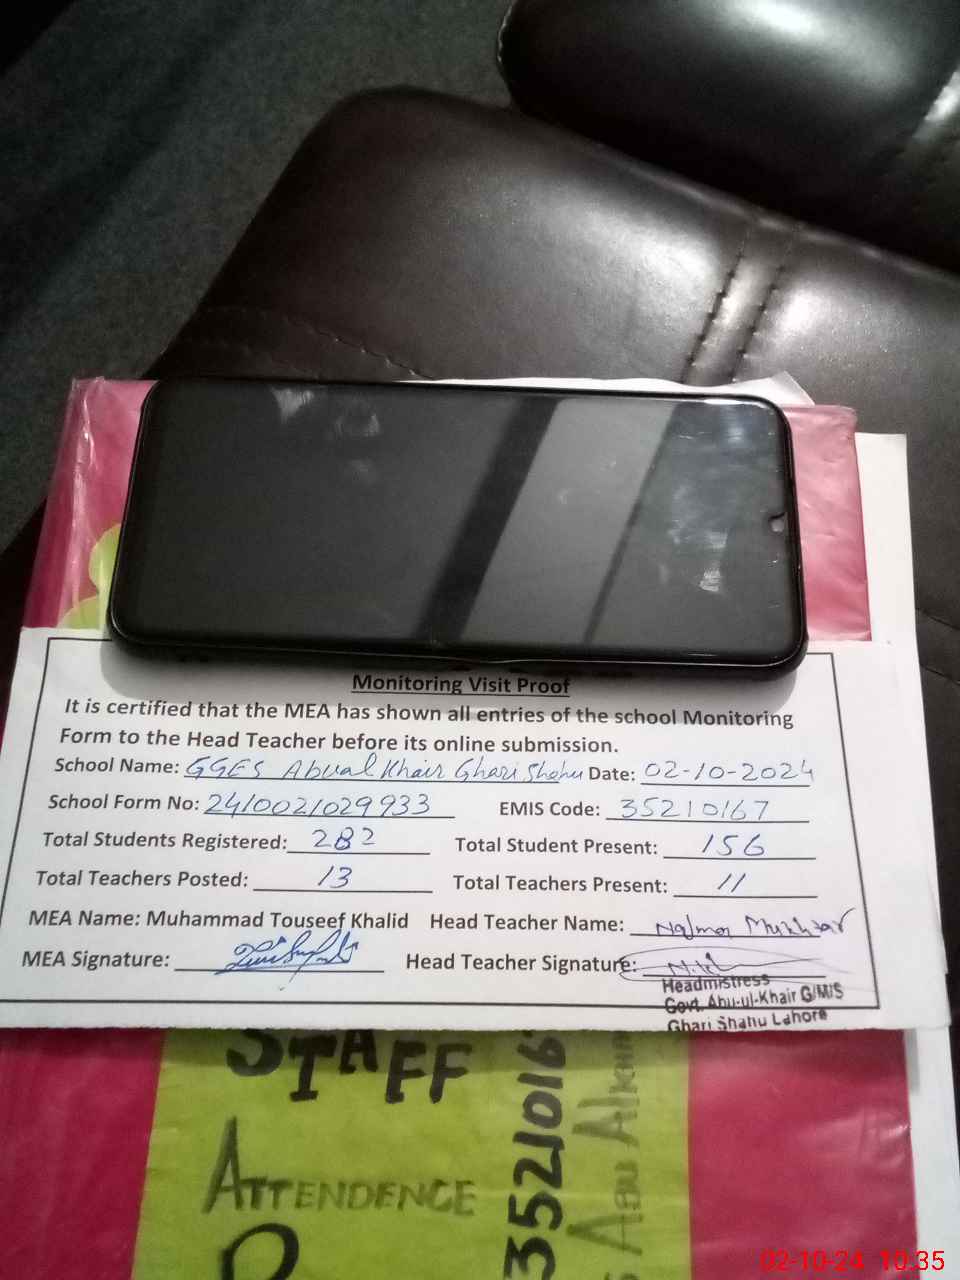 Monitoring Visit Proof
It is certified that the MEA has shown all entries of the school Monitoring
Form to the Head Teacher before its online submission.
School Name: GGES Abual Khair Ghari Shahu Date: 02-10-2024
School Form No: 2410021029933 EMIS Code: 35210167
Total Students Registered: 282 Total Student Present: 156
Total Teachers Posted: 13 Total Teachers Present: 11
MEA Name: Muhammad Touseef Khalid Head Teacher Name: Najma Mukhtar
MEA Signature: Head Teacher Signature:
Headmistress
Govt. Abu-ul-Khair G/M/S
Ghari Shahu Lahore
STAFF
ATTENDENCE
3521016
Abu Alkha
02-10-24 10:35